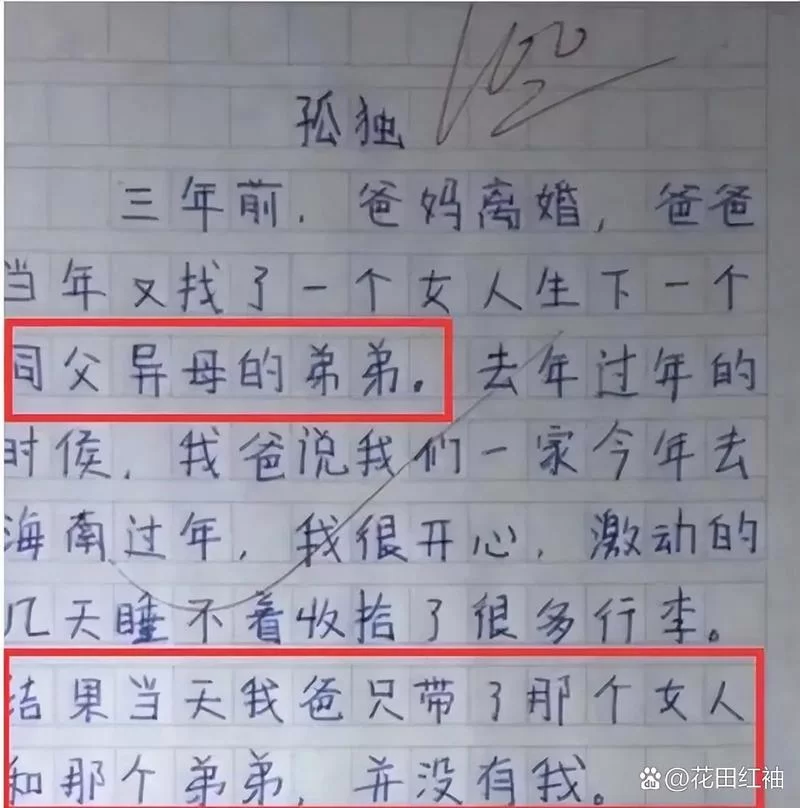 100
孤独
三年前，爸妈离婚，爸爸
当年又找了一个女人生下一个
同父异母的弟弟。去年过年的
时候，我爸说我们一家今年去
海南过年，我很开心，激动的
几天睡不着收拾了很多行李。
结果当天我爸只带了那个女人
和那个弟弟，并没有我。
du @花田红袖